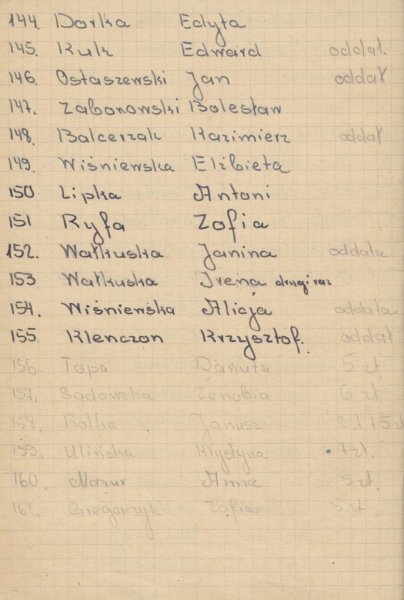 144. Dorka Edyta
145. Kulz Edward oddał.
146. Ostaszewski Jan oddał
147. Zaborowski Bolesław
148. Balcerzak Kazimierz oddał
149. Wiśniewska Elżbieta
150 Lipka Antoni
151 Ryfa Zofia
152. Wałkuska Janina oddała
153 Wałkuska Irena drugi raz
154. Wiśnieńska Alicja oddała
155. Klenczon Krzysztof. oddał
156. Topa Danuta 5 zł
157. Sadowska Zenobia 6 zł.
158. Rolka Janusz
159. Ulińska Krystyna 7 zł.
160. Mazur Anna 5 zł.
161. Gregorczyk Zofia 5 zł.